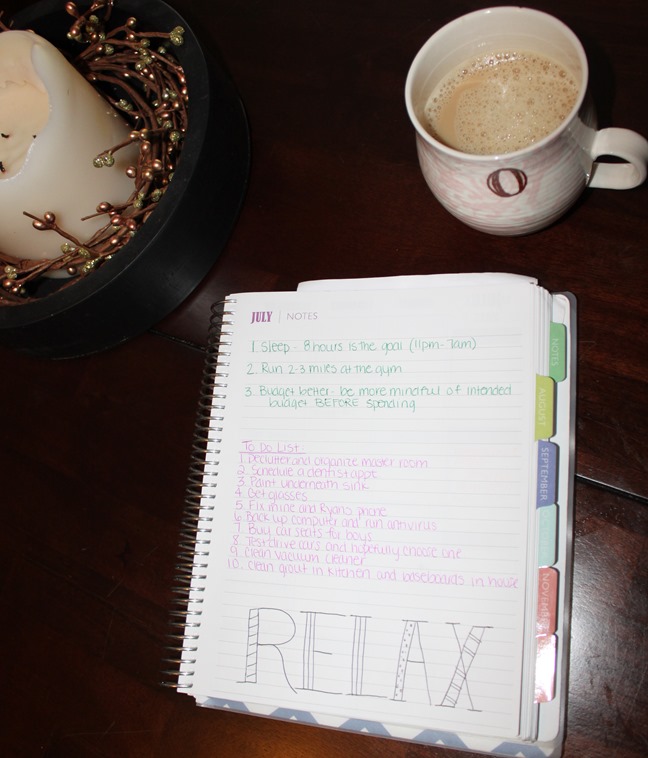 O
JULY | NOTES
1. Sleep - 8 hours is the goal (11pm-7am)
2. Run 2-3 miles at the gym
3. Budget better- be more mindful of intended
budget BEFORE spending
To Do List:
1. Declutter and organize master room
2. Schedule a dentist appt
3. Paint underneath sink
4. Get glasses
5. Fix mine and Ryan's phone
6. Back up computer and run antivirus
7. Buy car seats for boys
8. Test drive cars and hopefully choose one
9. Clean vacuum cleaner
10. Clean grout in kitchen and baseboards in house
RELAX
NOTES
AUGUST
SEPTEMBER
NOVEMBER